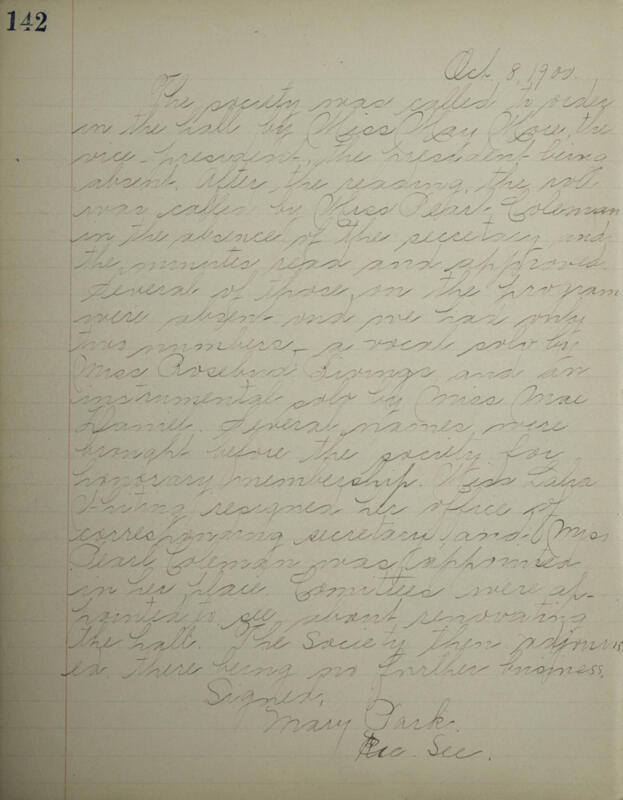 142
Oct. 8, 1900.
The society was called to order
in the hall by Miss May More, the
vice-president, the president being
absent. After the reading, the roll
was called by Miss Pearl Coleman
in the absence of the secretary and
the minutes read and approved.
Several of those on the program
were absent and we had only
two numbers, a vocal solo by
Miss Rosebud Livings and an
instrumental solo by Miss Mae
Daniel. Several names were
brought before the society for
honorary membership. Miss
Whiting resigned her office of
corresponding secretary and Miss
Pearl Coleman was appointed
in her place. Comittees were ap-
pointed to see about renovating
the hall. The Society then adjourn
ed, there being no further business.
Signed,
Mary Park.
Rec. Sec.